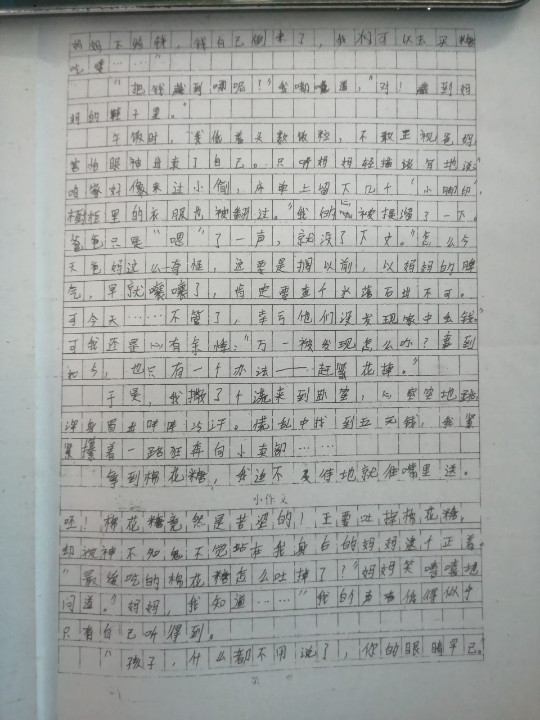 妈妈不给钱，钱自己偷来了，我们可以去买糖
吃喽……"
"把钱藏到哪呢？"我嘟囔道，"对！藏到妈
妈的鞋子里。"
午饭时，我低着头数饭粒，不敢正视爸妈，
害怕眼神出卖了自己。只听妈妈轻描淡写地说：
"咱家好像来过小偷，床单上留下几个小脚印，
橱柜里的衣服也被翻过。"我的心被揪了一下。
爸爸只是"嗯"了一声，就没了下文。怎么今
天爸妈过这么奇怪，这要是搁以前，以妈妈的脾
气，早就嚷嚷了，肯定要查个水落石出不可。
可今天……不管了，幸亏他们没发现家中丢钱。
可我还是心有余悸："万一被发现怎么办？事到
如今，也只有一个办法——赶紧花掉。"
于是，我撒了个谎来到卧室，心突突地跳，
浑身冒着冷汗。慌乱中找到五元钱，我紧
紧攥着一路狂奔向小卖部……
拿到棉花糖，我迫不及待地就往嘴里送。
小作文
呸！棉花糖竟然是苦涩的！正要吐掉棉花糖，
却被神不知鬼不觉站在我身后的妈妈逮个正着。
"最爱吃的棉花糖怎么吐掉了？"妈妈笑嘻嘻地
问道。"妈妈，我知道……"我的声音低得似乎
只有自己听得到。
"孩子，什么都不用说了，你的眼睛早已